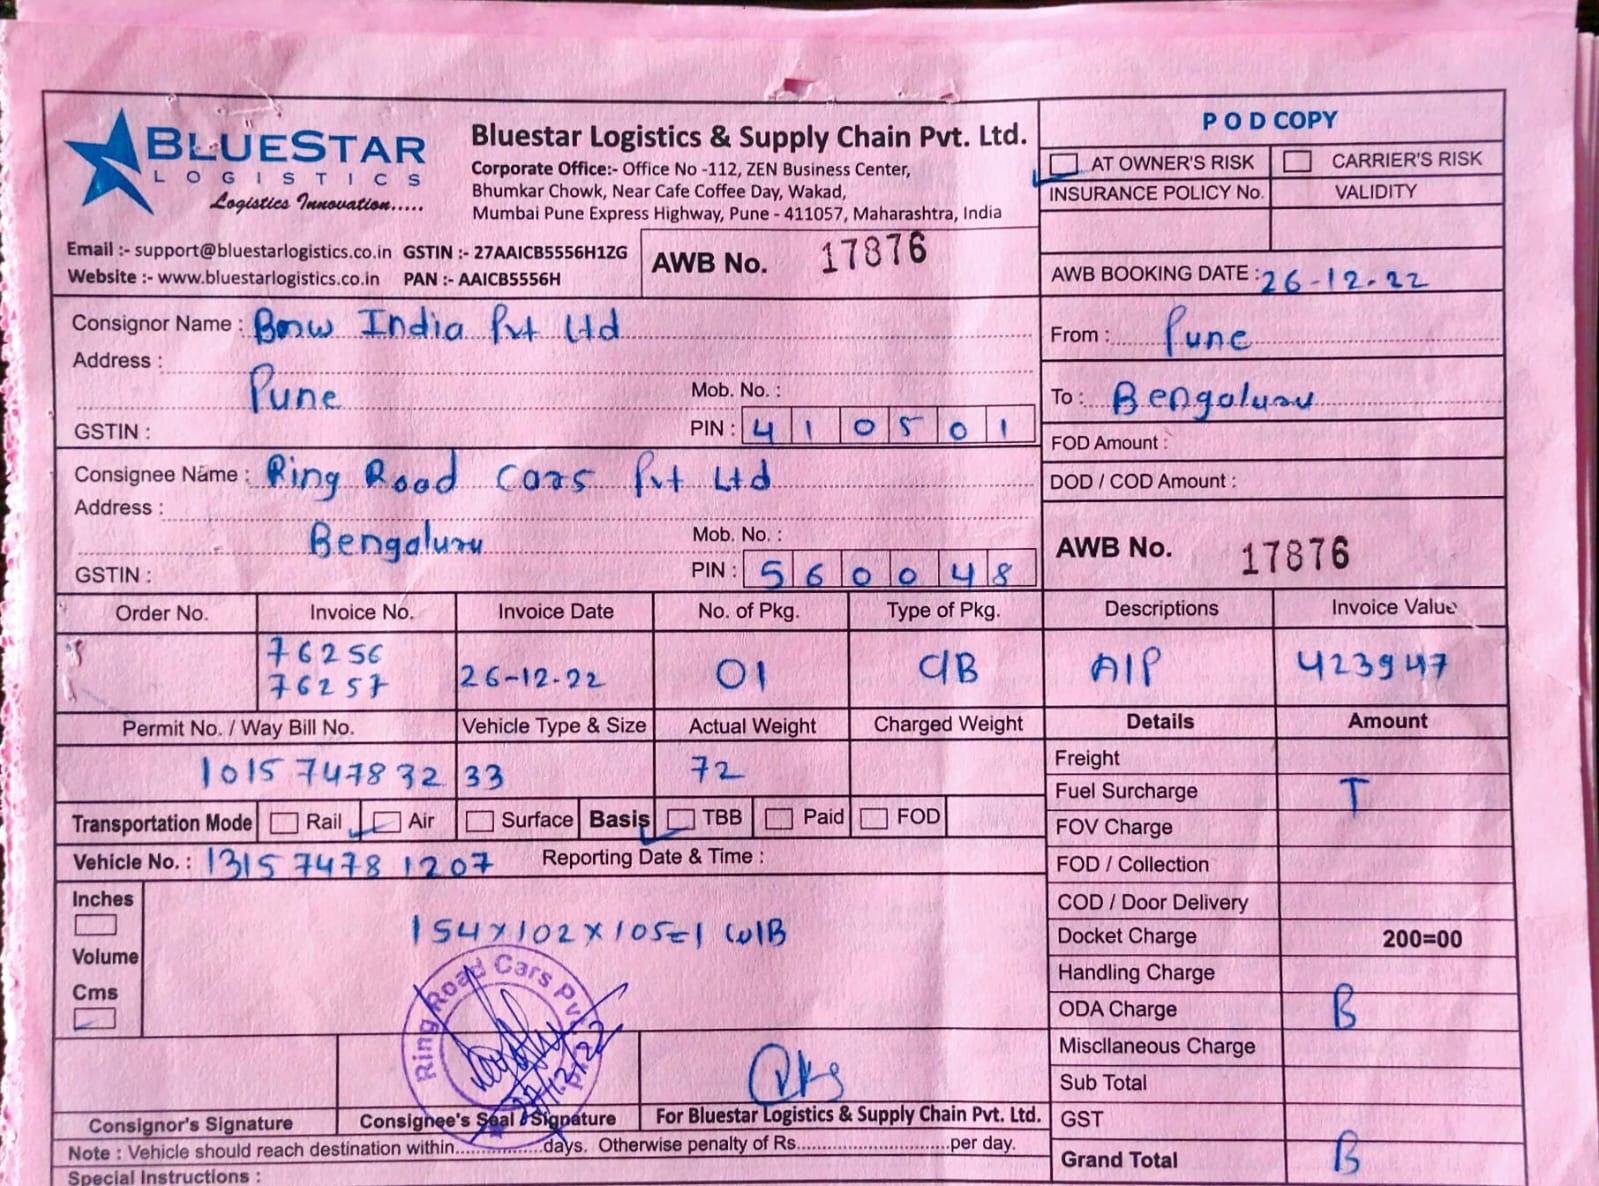 BLUESTAR
LOGISTICS
Logistics Innovation.....
Bluestar Logistics & Supply Chain Pvt. Ltd.
Corporate Office:- Office No -112, ZEN Business Center,
Bhumkar Chowk, Near Cafe Coffee Day, Wakad,
Mumbai Pune Express Highway, Pune - 411057, Maharashtra, India
Email :- support@bluestarlogistics.co.in GSTIN :- 27AAICB5556H1ZG
Website :- www.bluestarlogistics.co.in PAN :- AAICB5556H
AWB No. 17876
POD COPY
AT OWNER'S RISK CARRIER'S RISK
INSURANCE POLICY No. VALIDITY
AWB BOOKING DATE : 26-12-22
Consignor Name : Bmw India Pvt Ltd
Address :
Pune
Mob. No. :
GSTIN : PIN : 410501
From : Pune
To : Bengaluru
FOD Amount :
DOD / COD Amount :
Consignee Name : Ring Road Cars Pvt Ltd
Address :
Bengaluru
Mob. No. :
GSTIN : PIN : 560048
AWB No. 17876
Order No. Invoice No. Invoice Date No. of Pkg. Type of Pkg. Descriptions Invoice Value
76256
76257 26-12-22 01 C/B A/P 423947
Permit No. / Way Bill No. Vehicle Type & Size Actual Weight Charged Weight
1015 747832 33 72
Transportation Mode Rail Air Surface Basis TBB Paid FOD
Vehicle No. : 1315 7478 1207 Reporting Date & Time :
Details Amount
Freight
Fuel Surcharge T
FOV Charge
FOD / Collection
COD / Door Delivery
Docket Charge 200=00
Handling Charge
ODA Charge B
Miscllaneous Charge
Sub Total
GST
Grand Total B
Inches
Volume
Cms
154×102×105=1 W/B
Ring Road Cars Pvt
Consignor's Signature Consignee's Seal & Signature For Bluestar Logistics & Supply Chain Pvt. Ltd.
Note : Vehicle should reach destination within..................days. Otherwise penalty of Rs..............................per day.
Special Instructions :